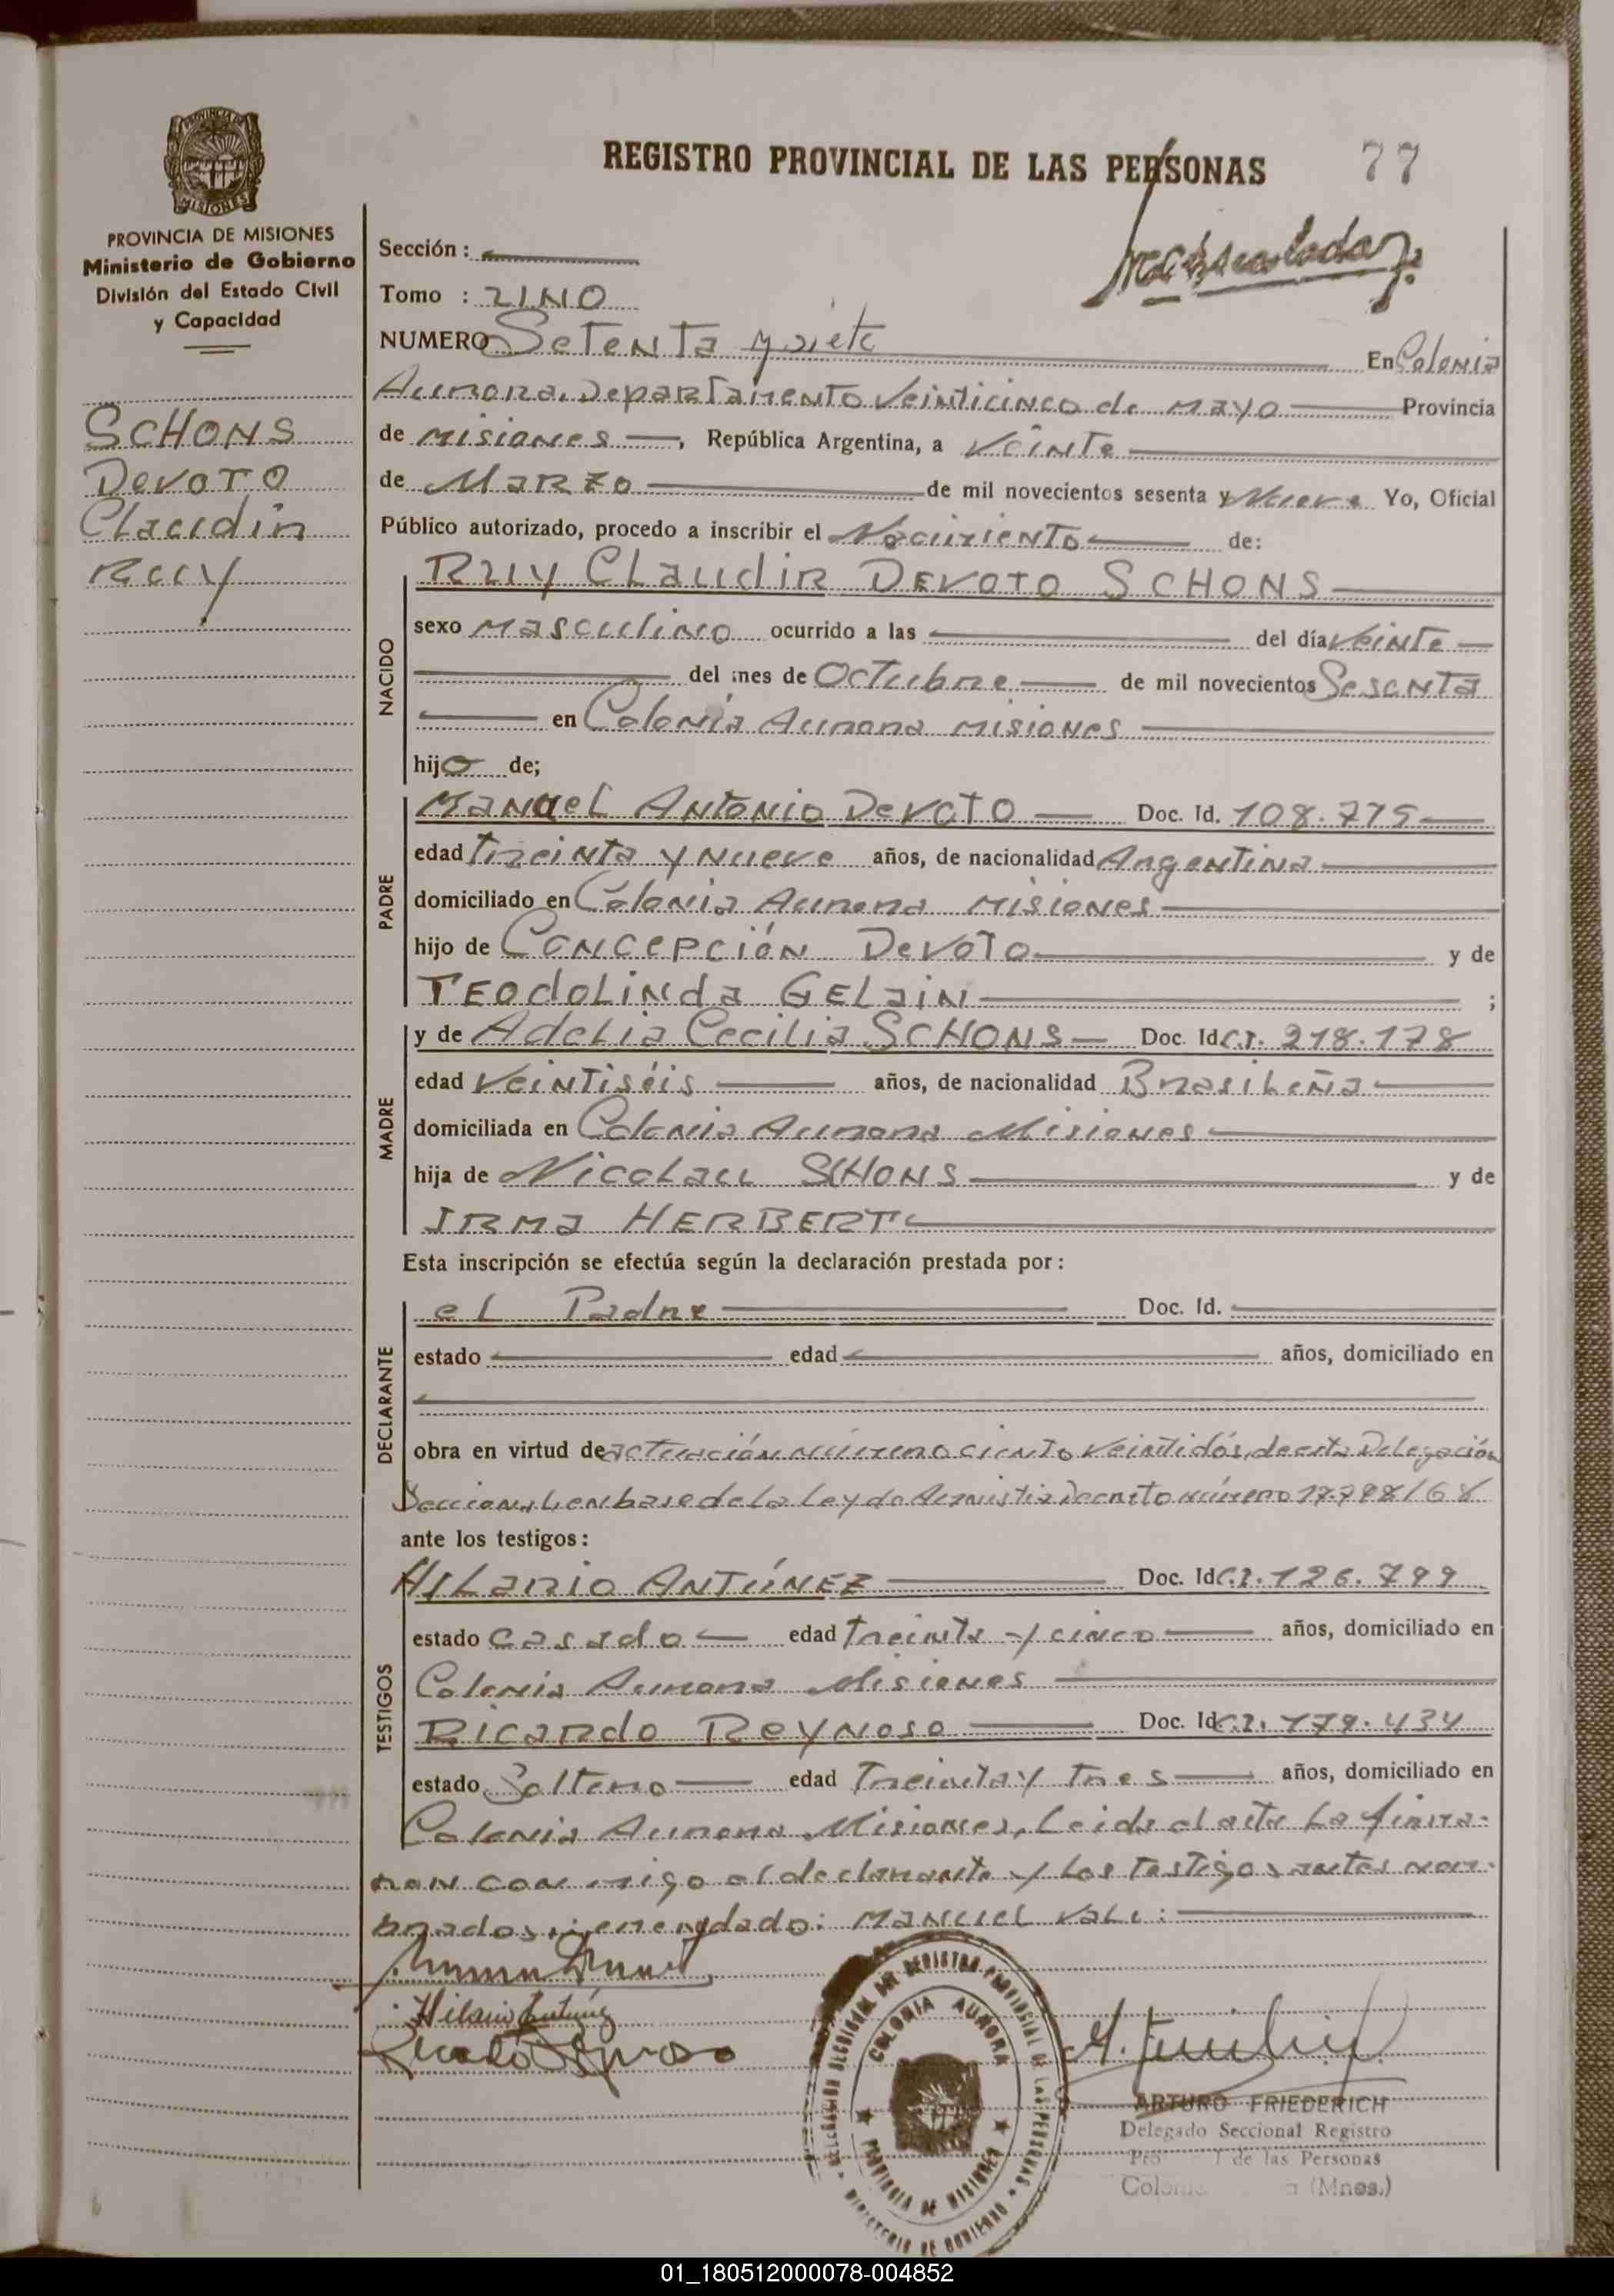 REGISTRO PROVINCIAL DE LAS PERSONAS
77
PROVINCIA DE MISIONES
Ministerio de Gobierno
División del Estado Civil
y Capacidad
SCHONS
DEVOTO
Claudir
Ruy
Sección :
Tomo : UNO
NUMERO Setenta y siete En Colonia
Aurora, Departamento Veinticinco de Mayo Provincia
de Misiones, República Argentina, a Veinte
de Marzo de mil novecientos sesenta y Nueve Yo, Oficial
Público autorizado, procedo a inscribir el Nacimiento de:
Ruy Claudir DEVOTO SCHONS
NACIDO
sexo Masculino ocurrido a las del día Veinte
del mes de Octubre de mil novecientos Sesenta
en Colonia Aurora Misiones
hijo de;
PADRE
Manuel Antonio DEVOTO Doc. Id. 108.775
edad Treinta y Nueve años, de nacionalidad Argentina
domiciliado en Colonia Aurora Misiones
hijo de Concepción Devoto y de
Teodolinda Gelain ;
MADRE
y de Adelia Cecilia SCHONS Doc. Id C.I. 218.178
edad Veintiséis años, de nacionalidad Brasileña
domiciliada en Colonia Aurora Misiones
hija de Nicolau SCHONS y de
IRMA HERBERT
Esta inscripción se efectúa según la declaración prestada por :
DECLARANTE
el Padre Doc. Id.
estado edad años, domiciliado en
obra en virtud de actuación número ciento veintidós, de esta Delegación
Seccional, en base de la Ley de Amnistia Decreto número 17.798/68
ante los testigos :
TESTIGOS
Hilario ANTÚNEZ Doc. Id C.I. 126.799
estado Casado edad Treinta y cinco años, domiciliado en
Colonia Aurora Misiones
Ricardo Reynoso Doc. Id C.I. 179.434
estado Soltero edad Treinta y Tres años, domiciliado en
Colonia Aurora Misiones, Leida el acta la firma-
ran con migo el declarante y los testigos antes nom-
brados; enmendado: Manuel Vale:
Hilario Antúnez
Ricardo Reynoso
DELEGACION SECCIONAL DEL REGISTRO PROVINCIAL DE LAS PERSONAS
COLONIA AURORA
PROVINCIA DE MISIONES
MINISTERIO DE GOBIERNO
ARTURO FRIEDERICH
Delegado Seccional Registro
de las Personas
(Mnes.)
01_180512000078-004852